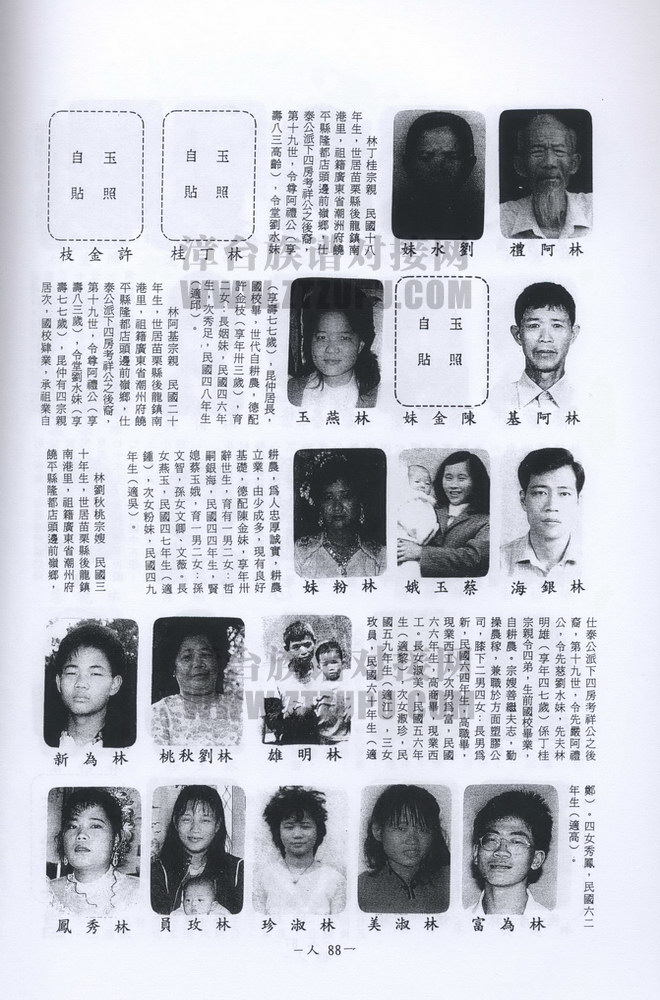 林阿禮
劉水妹
林丁桂宗親　民國十八
年生，世居苗栗縣後龍鎮南
港里，祖籍廣東省潮洲府饒
平縣隆都店頭邊前嶺鄉，仕
泰公派下四房考祥公之後裔，
第十九世，令尊阿禮公（享
壽八三高齡），令堂劉水妹
玉照
自貼
林丁桂
玉照
自貼
許金枝
林阿基
玉照
自貼
陳金妹
林燕玉
（享壽七七歲），昆仲居長，
國校畢，世代自耕農，德配
許金枝（享年卅三歲），育
二女：長姻妹，民國四六年
生，次秀足，民國四八年生
（適邱）。
林阿基宗親　民國二十
年生，世居苗栗縣後龍鎮南
港里，祖籍廣東省潮州府饒
平縣隆都店頭邊前嶺鄉，仕
泰公派下四房考祥公之後裔，
第十九世，令尊阿禮公（享
壽八三歲），令堂劉水妹（享
壽七七歲），昆仲有四宗親
居次，國校肄業，承祖業自
林銀海
蔡玉娥
林粉妹
耕農，為人忠厚誠實，耕農
立業，由少成多，現有良好
基礎，德配陳金妹，享年卅
辭世生，育有一男二女：哲
嗣銀海，民國四四年生，賢
媳蔡玉娥，育一男二女：孫
文智，孫女文卿、文薇。長
女燕玉，民國四七年生（適
鍾），次女粉妹，民國四九
年生（適吳）。
林劉秋桃宗嫂　民國三
十年生，世居苗栗縣後龍鎮
南港里，祖籍廣東省潮州府
饒平縣隆都店頭邊前嶺鄉，
仕泰公派下四房考祥公之後
裔，第十九世，令先嚴阿禮
公，令先慈劉水妹，先夫林
明雄（享年四七歲）係丁桂
宗親令四弟，生前國校畢業，
自耕農。宗嫂善繼夫志，勤
操農稼，兼職於方面塑膠公
司，膝下二男四女：長男為
新，民國六四年生，高職畢，
現業西工，次男為富，民國
六六年生，高商畢，現業西
工。長女淑美，民國五六年
生（適黎），次女淑珍，民
國五九年生（適江），三女
玫員，民國六十年生（適
林明雄
林劉秋桃
林為新
鄭）。四女秀鳳，民國六二
年生（適高）。
林為富
林淑美
林淑珍
林玫員
林秀鳳
—人 88—
漳台族谱对接网
WWW.ZTZUPU.COM
漳台族谱对接网
WWW.ZTZUPU.COM